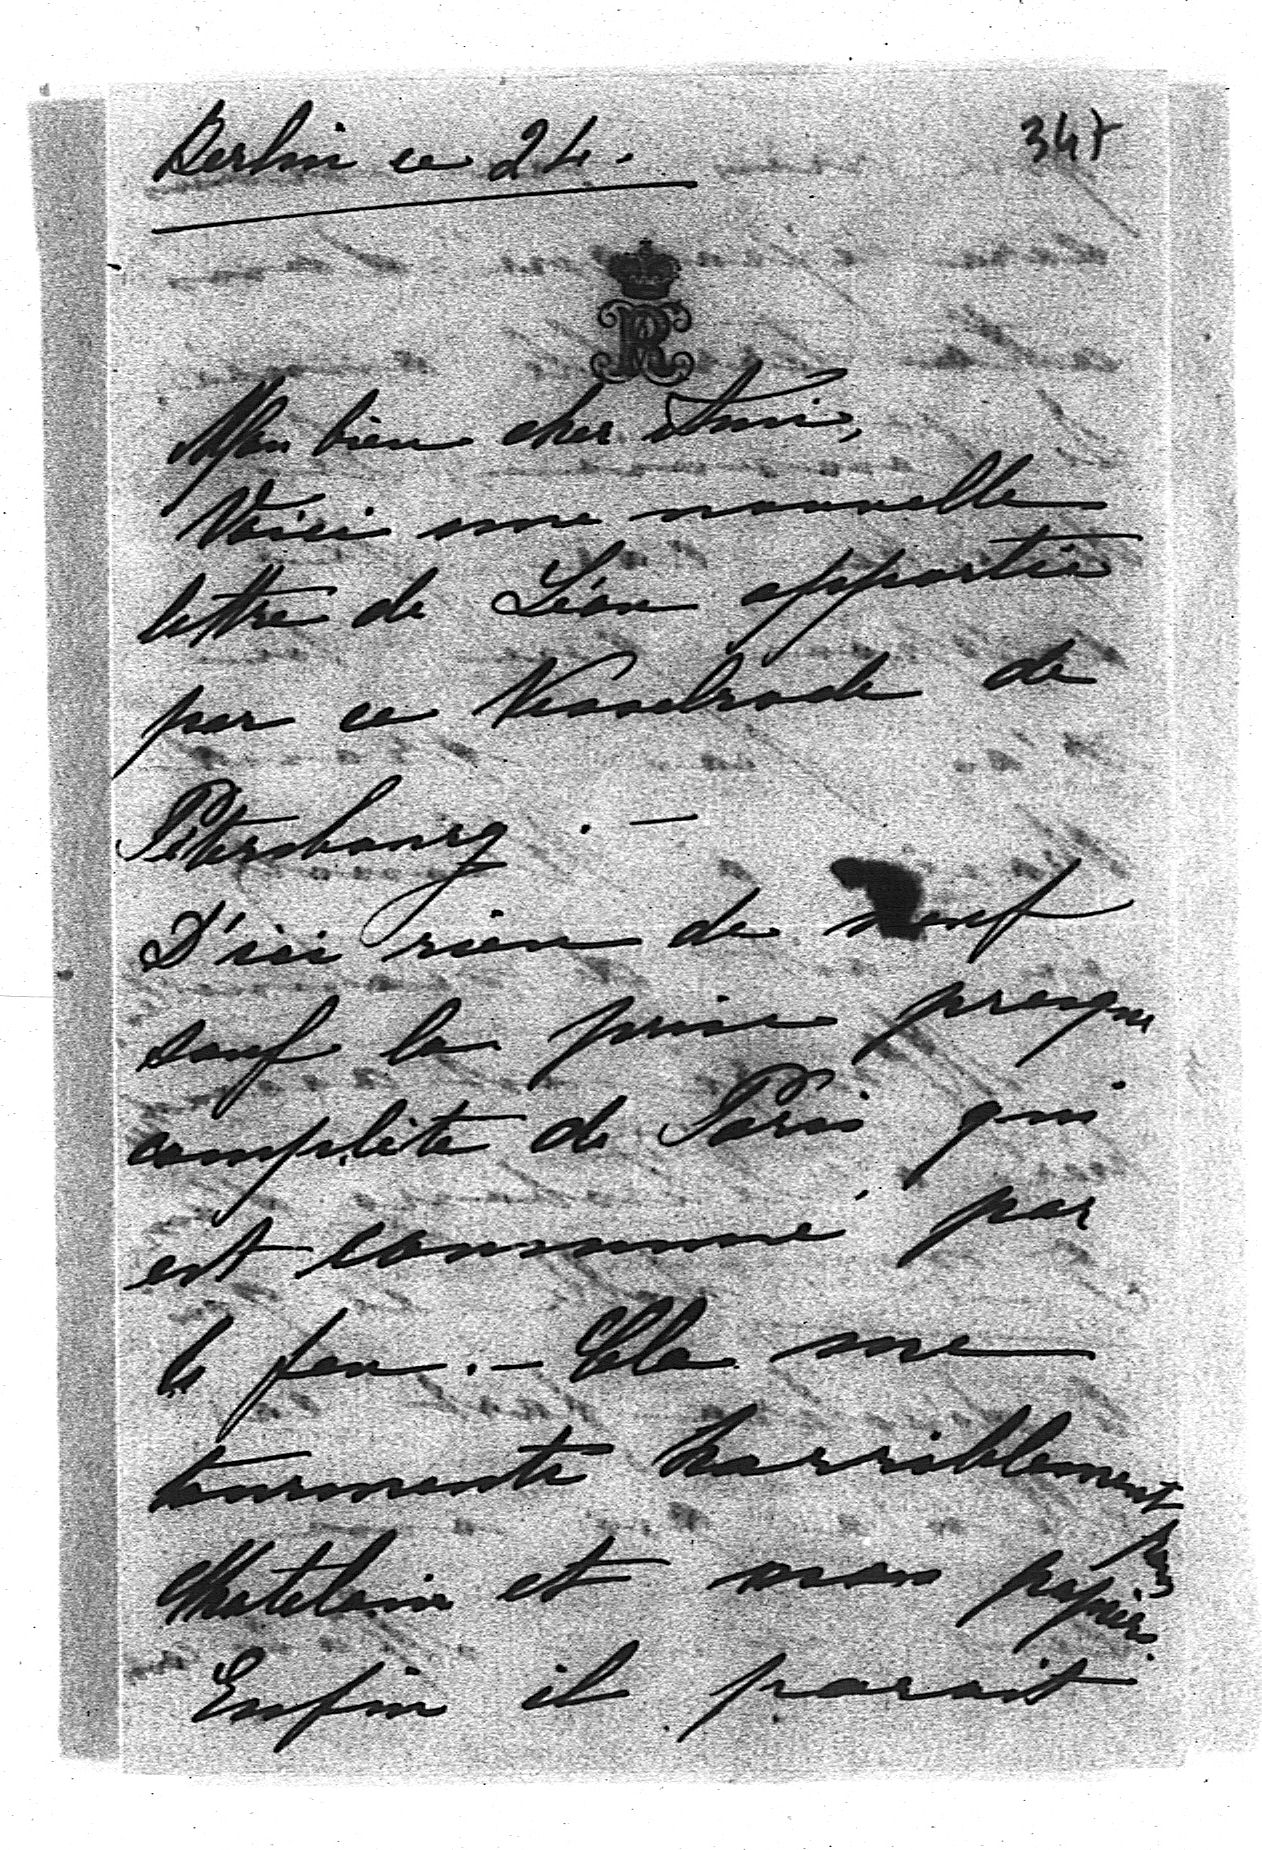 Berlin ce 24.
347
Mon bien cher Ami,
Voici une nouvelle
lettre de Léon apportée
par ce Nesselrode de
Pétersbourg. —
D'ici rien de neuf
sauf la prise presque
complète de Paris qui
est consummé par
le feu. — Cela me
tourmente horriblement
pour
Chatelain et mes papiers.
Enfin il parait